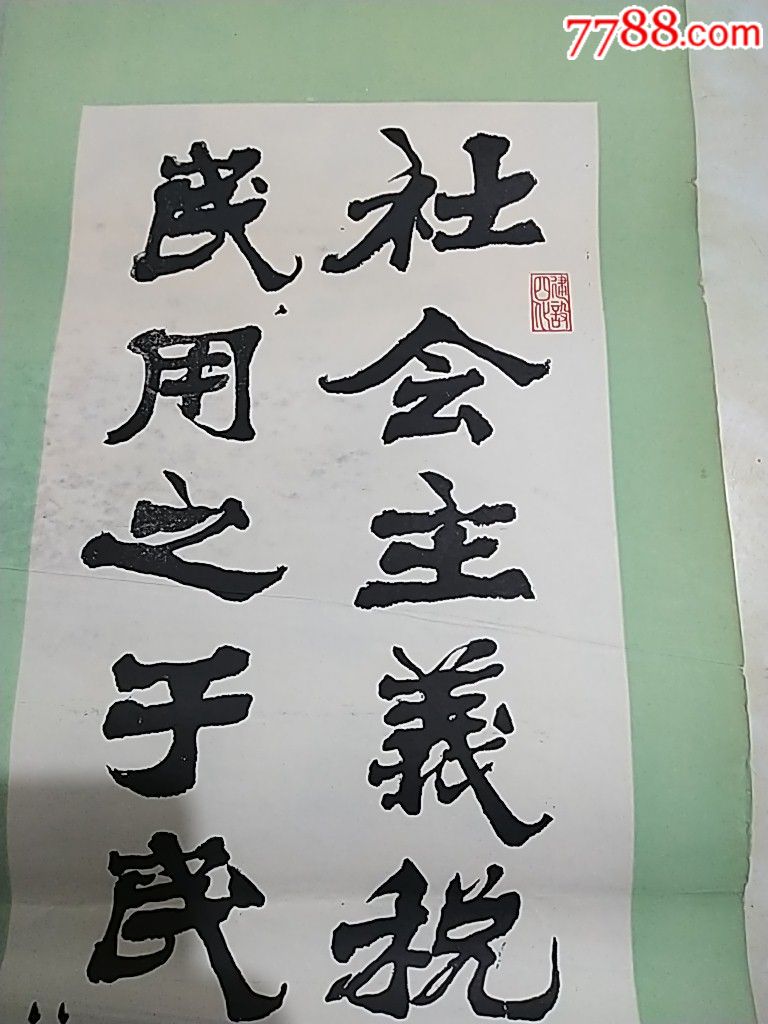 7788.com
社会主義税
民用之于民
建設四化